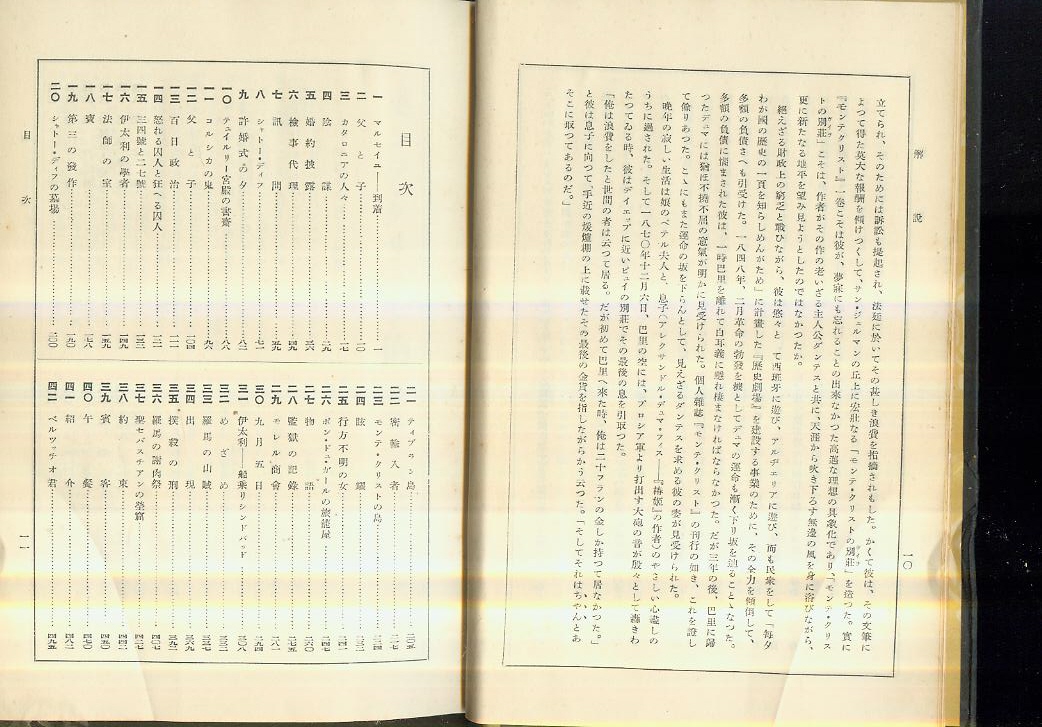 解説
一〇
立てられ、そのためには訴訟も提起され、法廷に於いてその甚しき浪費を指摘されもした。かくて彼は、その文筆に
よつて得た莫大な報酬を傾けつくして、サン・ジェルマンの丘上に宏壯なる「モンテ・クリストの別莊」を造つた。實に
『モンテクリスト』一巻こそは彼が、夢寐にも忘れることの出來なかつた高邁な理想の具象化であり、「モンテ・クリス
トの別莊」こそは、作者がその作の老いざる主人公ダンテスと共に、天涯から吹き下ろす無邊の風を身に浴びながら、
更に新たなる地平を望み見ようとしたのではなかつたか。
絶えざる財政上の窮乏と戰ひながら、彼は悠々と て西班牙に遊び、アルヂェリアに遊び、而も民衆をして「毎夕
わが國の歴史の一頁を知らしめんがため」に計畫した『歴史劇場』を建設する事業のために、その全力を傾倒して、
多額の負債さへも引受けた。一八四八年、二月革命の勃發を機としてデュマの運命も漸く下り坂を辿ることゝなつた。
多額の負債に惱まされた彼は、一時巴里を離れて白耳義に隱れ棲まなければならなかつた。だが三年の後、巴里に歸
つたデュマには猶ほ不撓不屈の意氣が明かに見受けられた。個人雜誌『モンテ・クリスト』の刊行の如き、これを證し
て餘りあつた。こゝにもまた運命の坂を下らんとして、見えざるダンテスを求める彼の姿が見受けられた。
晩年の寂しい生活は娘のペテル夫人と、息子（アレクサンドル・デュマ・フィス——『椿姫』の作者）のやさしい心盡しの
うちに過された。そして一八七〇年十二月六日、巴里の空には、プロシア軍より打出す大砲の音が殷々として轟きわ
たつてゐる時、彼はディエップに近いピュイの別莊でその最後の息を引取つた。
「俺は浪費をしたと世間の者は云つて居る。だが初めて巴里へ來た時、俺は二十フランの金しか持つて居なかつた。」
と彼は息子に向つて、手近の煖爐棚の上に載せたその最後の金貨を指しながらかう云つた。「そしてそれはちやんとあ
そこに取つてあるのだ。」
目次
一 マルセイユ——到着 一
二 父と子 一〇
三 カタロニアの人々 一七
四 陰謀 二八
五 婚約披露 三六
六 檢事代理 四九
七 訊問
八 シャトー・ディフ 七一
九 許婚式の夕 八二
一〇 テュイルリー宮殿の書齋
一一 コルシカの鬼 九六
一二 父と子 一〇四
一三 百日政治 一一一
一四 怒れる囚人と狂へる囚人 一二一
一五 三四號と二七號 一三三
一六 伊太利の學者 一四九
一七 法師の室 一五九
一八 寶 一七八
一九 第三の發作 一九〇
二〇 シャトー・ディフの墓場 二〇〇
二一 ティブラン島 二〇五
二二 密輸入者
二三 モンテ・クリストの島 二二四
二四 眩耀
二五 行方不明の女 二四一
二六 ポン・デュ・ガールの旅籠屋
二七 物語 二六〇
二八 監獄の記錄 二七五
二九 モレル商會 二八一
三〇 九月五日 二九四
三一 伊太利——船乘りシンドバッド 三〇八
三二 めざめ 三三二
三三 羅馬の山賊 三三七
三四 出現 三六九
三五 撲殺の刑 三九二
三六 羅馬の謝肉祭
三七 聖セバスチアンの塋窟
三八 約束
三九 賓客 四五〇
四〇 午餐 四七〇
四一 紹介 四八二
四二 ベルツッチオ君 四九五
目次
一一